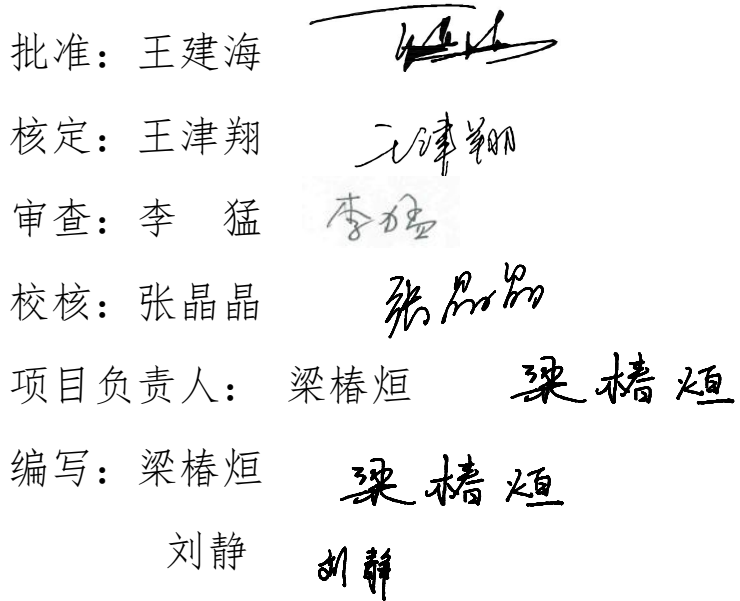 批准：王建海
核定：王津翔 王津翔
审查：李 猛 李猛
校核：张晶晶 张晶晶
项目负责人： 梁椿烜 梁椿烜
编写：梁椿烜 梁椿烜
刘静 刘静